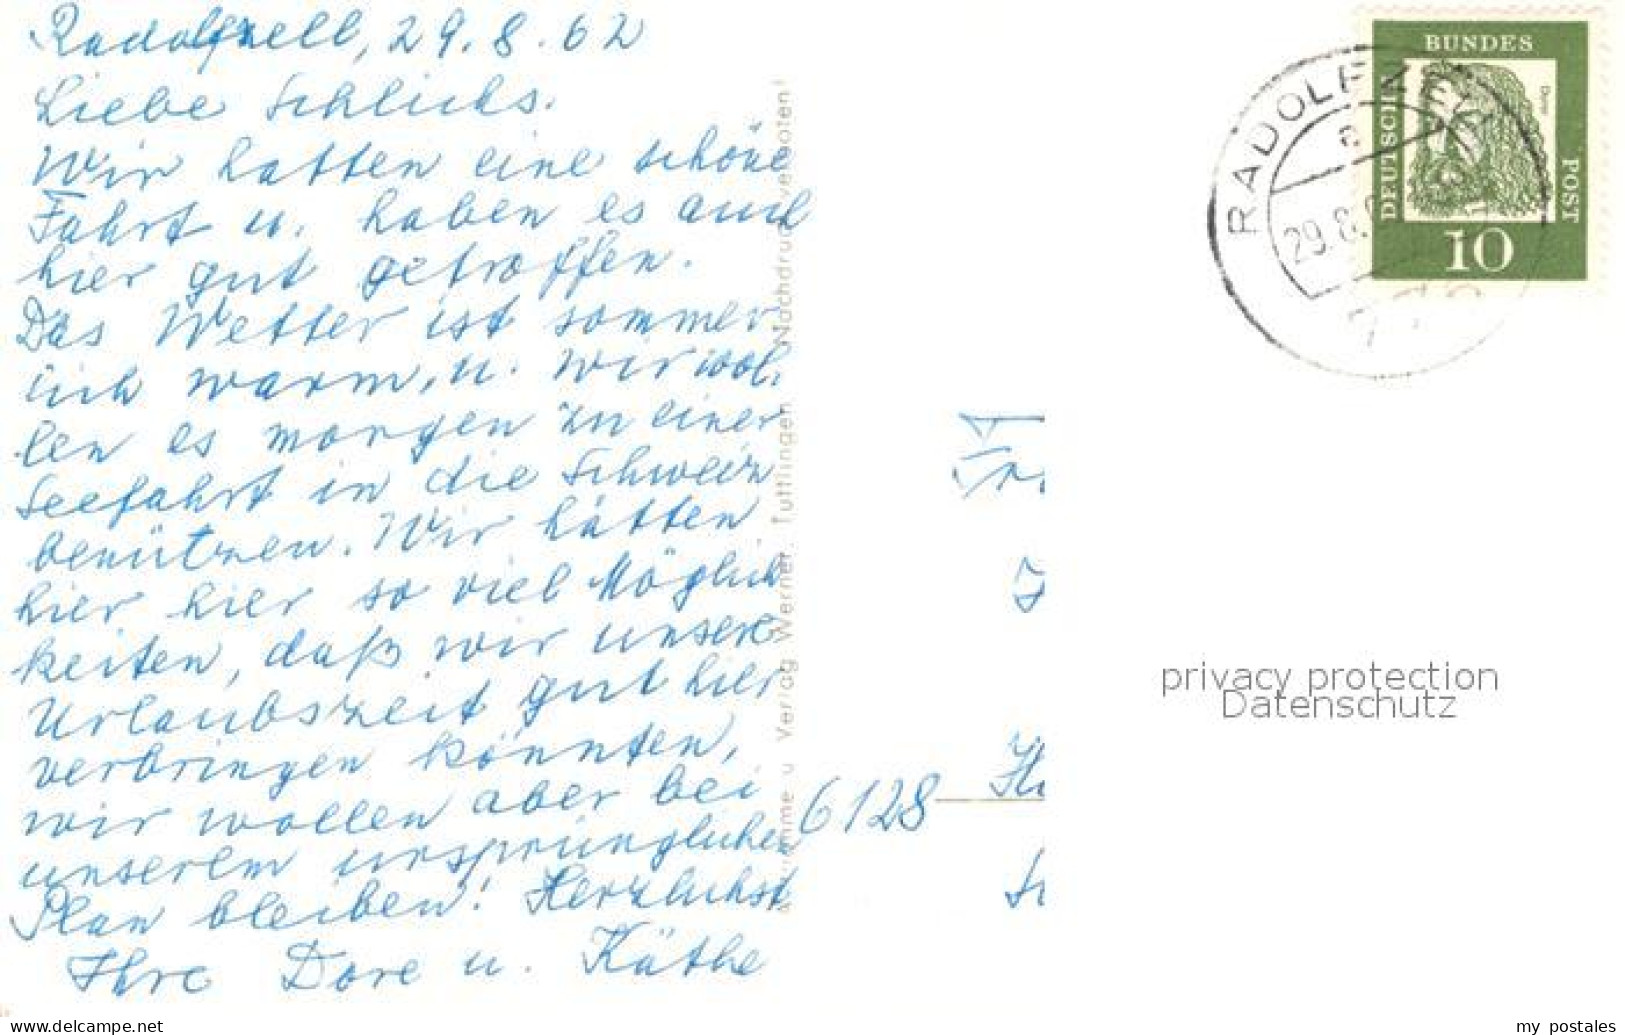 Radolfzell, 29.8.62
Liebe Schlicks.
Wir hatten eine schöne
Fahrt u. haben es auch
hier gut getroffen.
Das Wetter ist sommer
lich warm, u. wir wol,
len es morgen zu einer
Seefahrt in die Schweiz
benützen. Wir hätten
hier hier so viel Möglich
keiten, daß wir unsere
Urlaubszeit gut hier
verbringen könnten,
wir wollen aber bei
unserem ursprünglichen
Plan bleiben! Herzlichst
Ihre Dore u. Käthe
u. Verlag Werner, Tuttlingen Nachdruck verboten!
6128
BUNDES
DEUTSCHE
POST
Dürer
10
RADOLFZELL
29.8.
privacy protection
Datenschutz
www.delcampe.net
my_postales